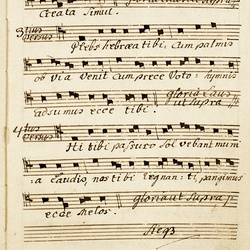 Creata Simul.
3tius Versus Plebs hebræa tibi, cum palmis
ob via Venit Cum prece Voto: hymnis
adsumus ecce tibi. Gloria Laus ut Supra
4tus Versus Hi tibi passuro Sol vebant muni
a laudis, nos tibi regnanti, pangimus
ecce melos. gloria ut Supra